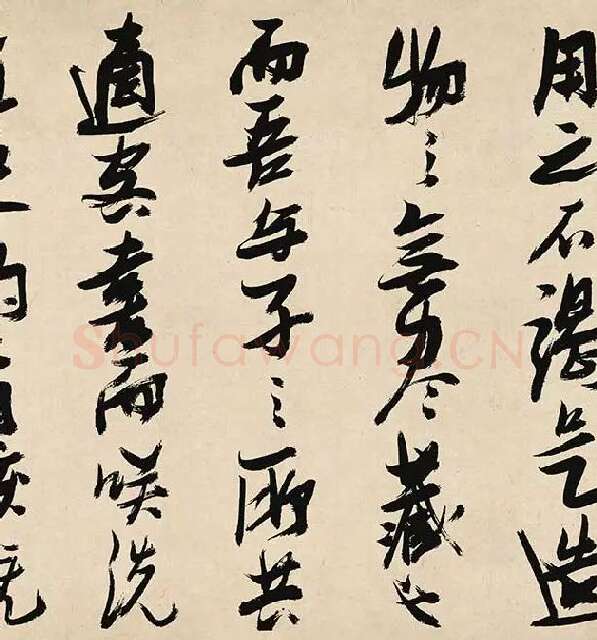 用之不竭是造
物之無尽藏也
而吾与子之所共
適客喜而咲洗
Shufawang.CN